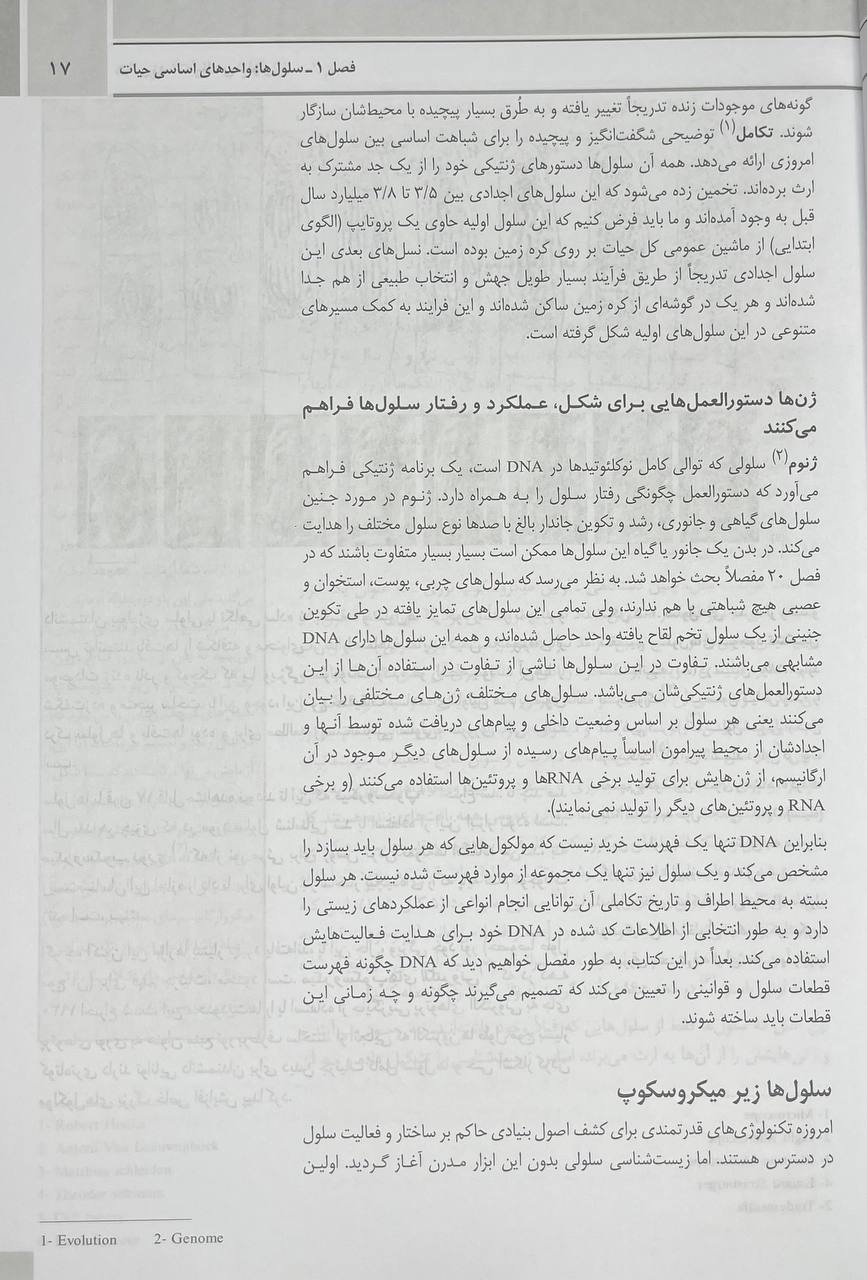 فصل ۱ ـ سلول‌ها: واحدهای اساسی حیات ۱۷
گونه‌های موجودات زنده تدریجاً تغییر یافته و به طُرق بسیار پیچیده با محیط‌شان سازگار
شوند. تکامل(۱) توضیحی شگفت‌انگیز و پیچیده را برای شباهت اساسی بین سلول‌های
امروزی ارائه می‌دهد. همه آن سلول‌ها دستورهای ژنتیکی خود را از یک جد مشترک به
ارث برده‌اند. تخمین زده می‌شود که این سلول‌های اجدادی بین ۳/۵ تا ۳/۸ میلیارد سال
قبل به وجود آمده‌اند و ما باید فرض کنیم که این سلول اولیه حاوی یک پروتایپ (الگوی
ابتدایی) از ماشین عمومی کل حیات بر روی کره زمین بوده است. نسل‌های بعدی ایـن
سلول اجدادی تدریجاً از طریق فرآیند بسیار طویل جهش و انتخاب طبیعی از هم جـدا
شده‌اند و هر یک در گوشه‌ای از کره زمین ساکن شده‌اند و این فرایند به کمک مسیرهای
متنوعی در این سلول‌های اولیه شکل گرفته است.
ژن‌ها دستورالعمل‌هایی بـرای شکل، عملکرد و رفتـار سلول‌ها فراهـم
می‌کنند
ژنوم(۲) سلولی که توالی کامل نوکلئوتیدها در DNA است، یک برنامه ژنتیکی فـراهـم
می‌آورد که دستورالعمل چگونگی رفتار سلول را بـه همراه دارد. ژنـوم در مـورد جنین
سلول‌های گیاهی و جانوری، رشد و تکوین جاندار بالغ با صدها نوع سلول مختلف را هدایت
می‌کند. در بدن یک جانور یا گیاه این سلول‌ها ممکن است بسیار بسیار متفاوت باشند که در
فصل ۲۰ مفصلاً بحث خواهد شد. به نظر می‌رسد که سلول‌های چربی، پوست، استخوان و
عصبی هیچ شباهتی با هم ندارند، ولی تمامی این سلول‌های تمایز یافته در طی تکوین
جنینی از یک سلول تخم لقاح یافته واحد حاصل شده‌اند، و همه این سلول‌ها دارای DNA
مشابهی می‌باشند. تفـاوت در ایـن سلول‌ها ناشی از تفاوت در استفاده آن‌هـا از ایـن
دستورالعمل‌های ژنتیکی‌شان مـی‌باشد. سلول‌های مـختلف، ژن‌هـای مـختلفی را بیـان
می‌کنند یعنی هر سلول بر اساس وضعیت داخلی و پیام‌های دریافت شده توسط آنـها و
اجدادشان از محیط پیرامون اساساً پـیام‌های رسیده از سلول‌های دیگـر مـوجود در آن
ارگانیسم، از ژن‌هایش برای تولید برخی RNAها و پروتئین‌ها استفاده می‌کنند (و برخی
RNA و پروتئین‌های دیگر را تولید نمی‌نمایند).
بنابراین DNA تنها یک فهرست خرید نیست که مولکول‌هایی که هر سلول باید بسازد را
مشخص می‌کند و یک سلول نیز تنها یک مجموعه از موارد فهرست شده نیست. هر سلول
بسته به محیط اطراف و تاریخ تکاملی آن توانایی انجام انواعی از عملکردهای زیستی را
دارد و به طور انتخابی از اطلاعات کد شده در DNA خود بـرای هـدایت فـعالیت‌هایش
استفاده می‌کند. بعداً در این کتاب، به طور مفصل خواهیم دید که DNA چگونه فهرست
قطعات سلول و قوانینی را تعیین می‌کند که تصمیم می‌گیرند چگونه و چـه زمـانی ایـن
قطعات باید ساخته شوند.
سلول‌ها زیر میکروسکوپ
امروزه تکنولوژی‌های قدرتمندی برای کشف اصول بنیادی حاکم بر ساختار و فعالیت سلول
در دسترس هستند. اما زیست‌شناسی سلولی بدون این ابزار مـدرن آغـاز گـردید. اولیـن
1- Evolution 2- Genome